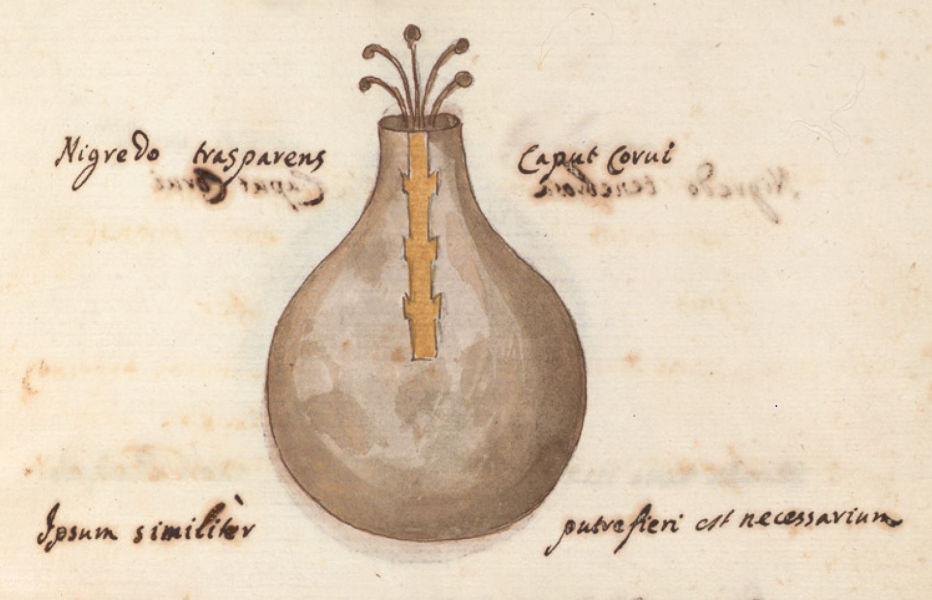 Nigredo trasparens Caput Corui
Ipsum similitèr putrefieri est necessarium